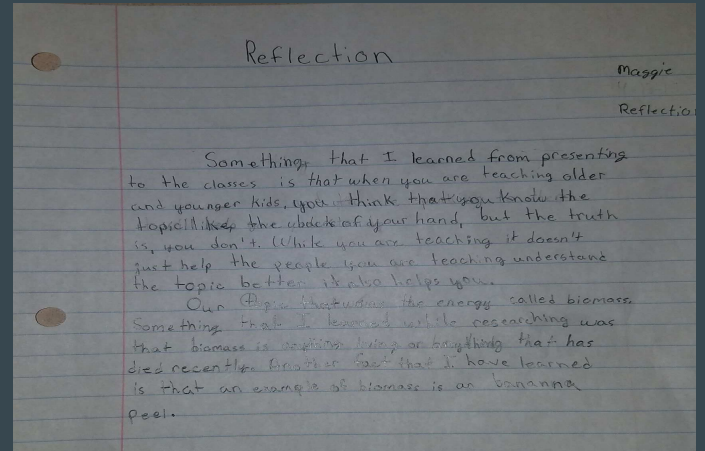 Reflection
Maggie
Reflectio
Something that I learned from presenting
to the classes is that when you are teaching older
and younger kids, you think that you know the
like the of your hand, but the truth
is, you don't. While you are teaching it doesn't
just help the people you are teaching understand
the topic better it also helps you.
Our the energy called biomass.
Something that I learned while researching was
that biomass is or anything that has
died recently. Another fact that I have learned
is that an example of biomass is an bananna
peel.